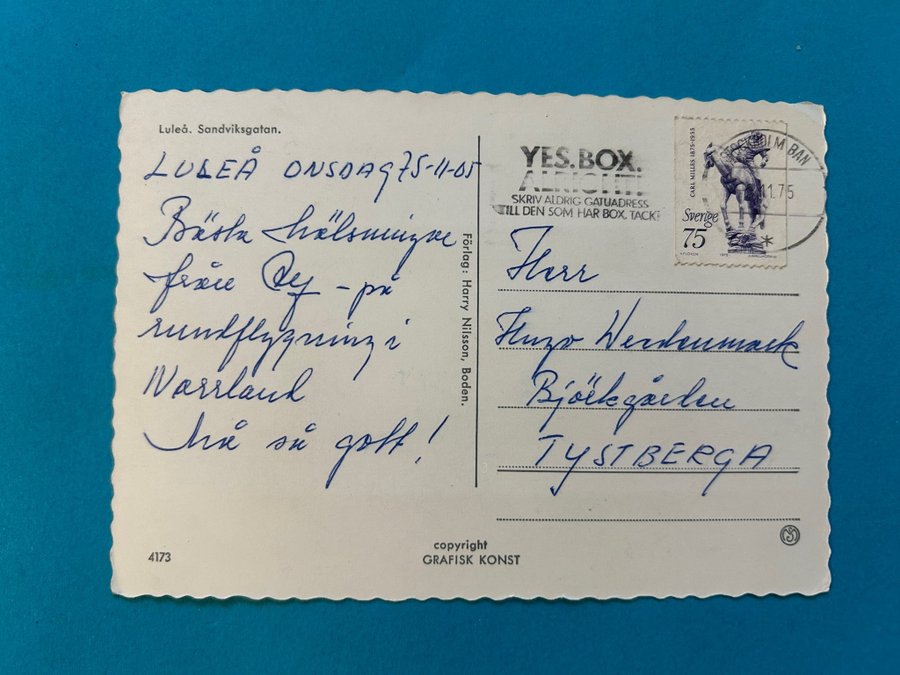 Luleå. Sandviksgatan.
LULEÅ ONSDAG 75-11-05
Bästa hälsningar
från - på
rundflygning i
Norrland
Må så gott!
Förlag: Harry Nilsson, Boden.
4173
copyright
GRAFISK KONST
YES.BOX.
ALRIGHT!
SKRIV ALDRIG GATUADRESS
TILL DEN SOM HAR BOX. TACK!
STOCKHOLM BAN
11.75
CARL MILLES 1875-1955
Sverige
75
1975
Herr
Hugo
Björkgården
TYSTBERGA